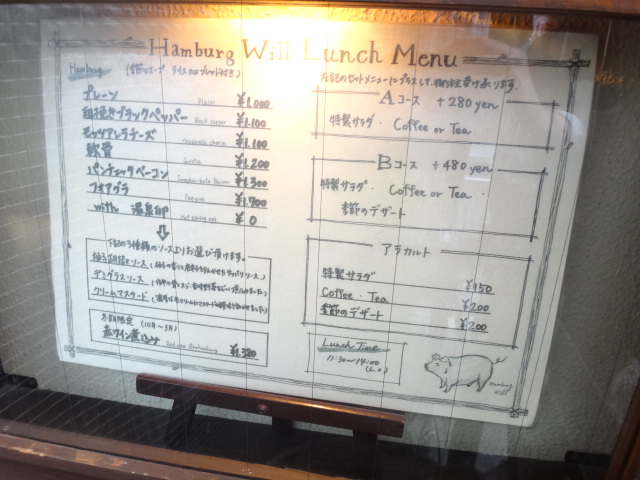 Hamburg Will Lunch Menu
Hamburg (季節のスープ・ライス又はブレッド付き)
プレーン Plain ¥1,000
粗挽きブラックペッパー Black pepper ¥1,100
モッツァレラチーズ Mozzarella cheese ¥1,100
軟骨 Gristle ¥1,200
パンチェッタベーコン ¥1,300
フォアグラ Foie gras ¥1,700
with 温泉卵 Hot spring egg ¥0
下記の3種類のソースよりお選び頂けます。
デミグラスソース
クリームマスタード
冬期限定 (10月〜3月)
赤ワイン煮込み ¥1,380
左記のセットメニューにプラスして、
Aコース +280 yen
特製サラダ・ Coffee or Tea
Bコース +480 yen
特製サラダ・ Coffee or Tea・
季節のデザート
アラカルト
特製サラダ ¥150
Coffee・Tea ¥200
季節のデザート ¥200
Lunch Time
11:30〜14:00
(L.O)
Hamburg
Will